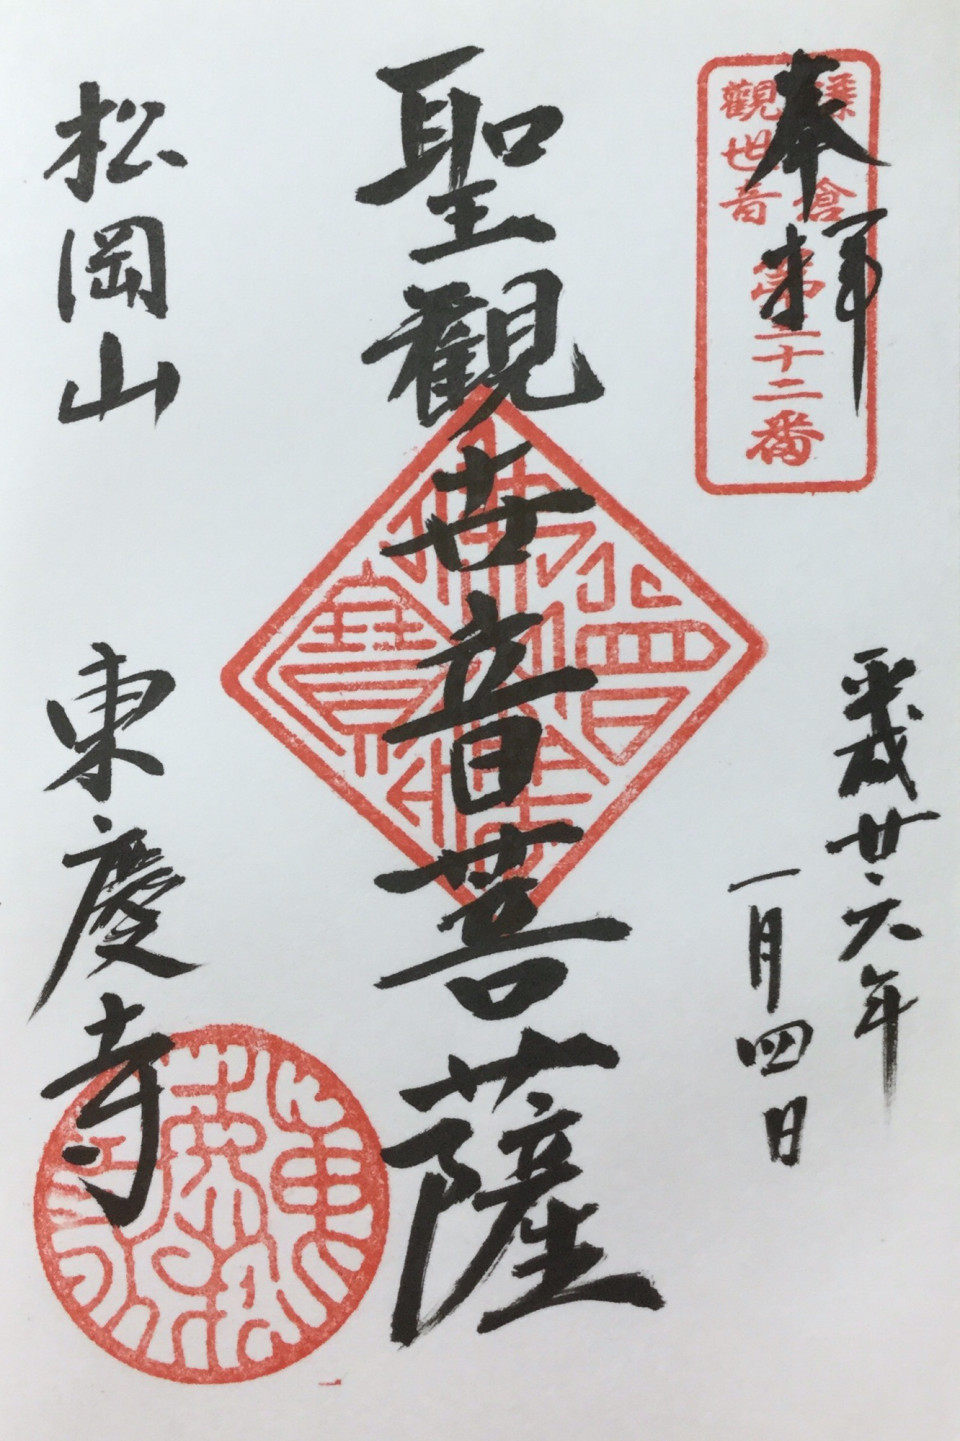 奉拝
鎌倉
觀世音
第三十二番
平成廿六年
一月四日
聖觀世音菩薩
佛法僧寶
松岡山
東慶寺